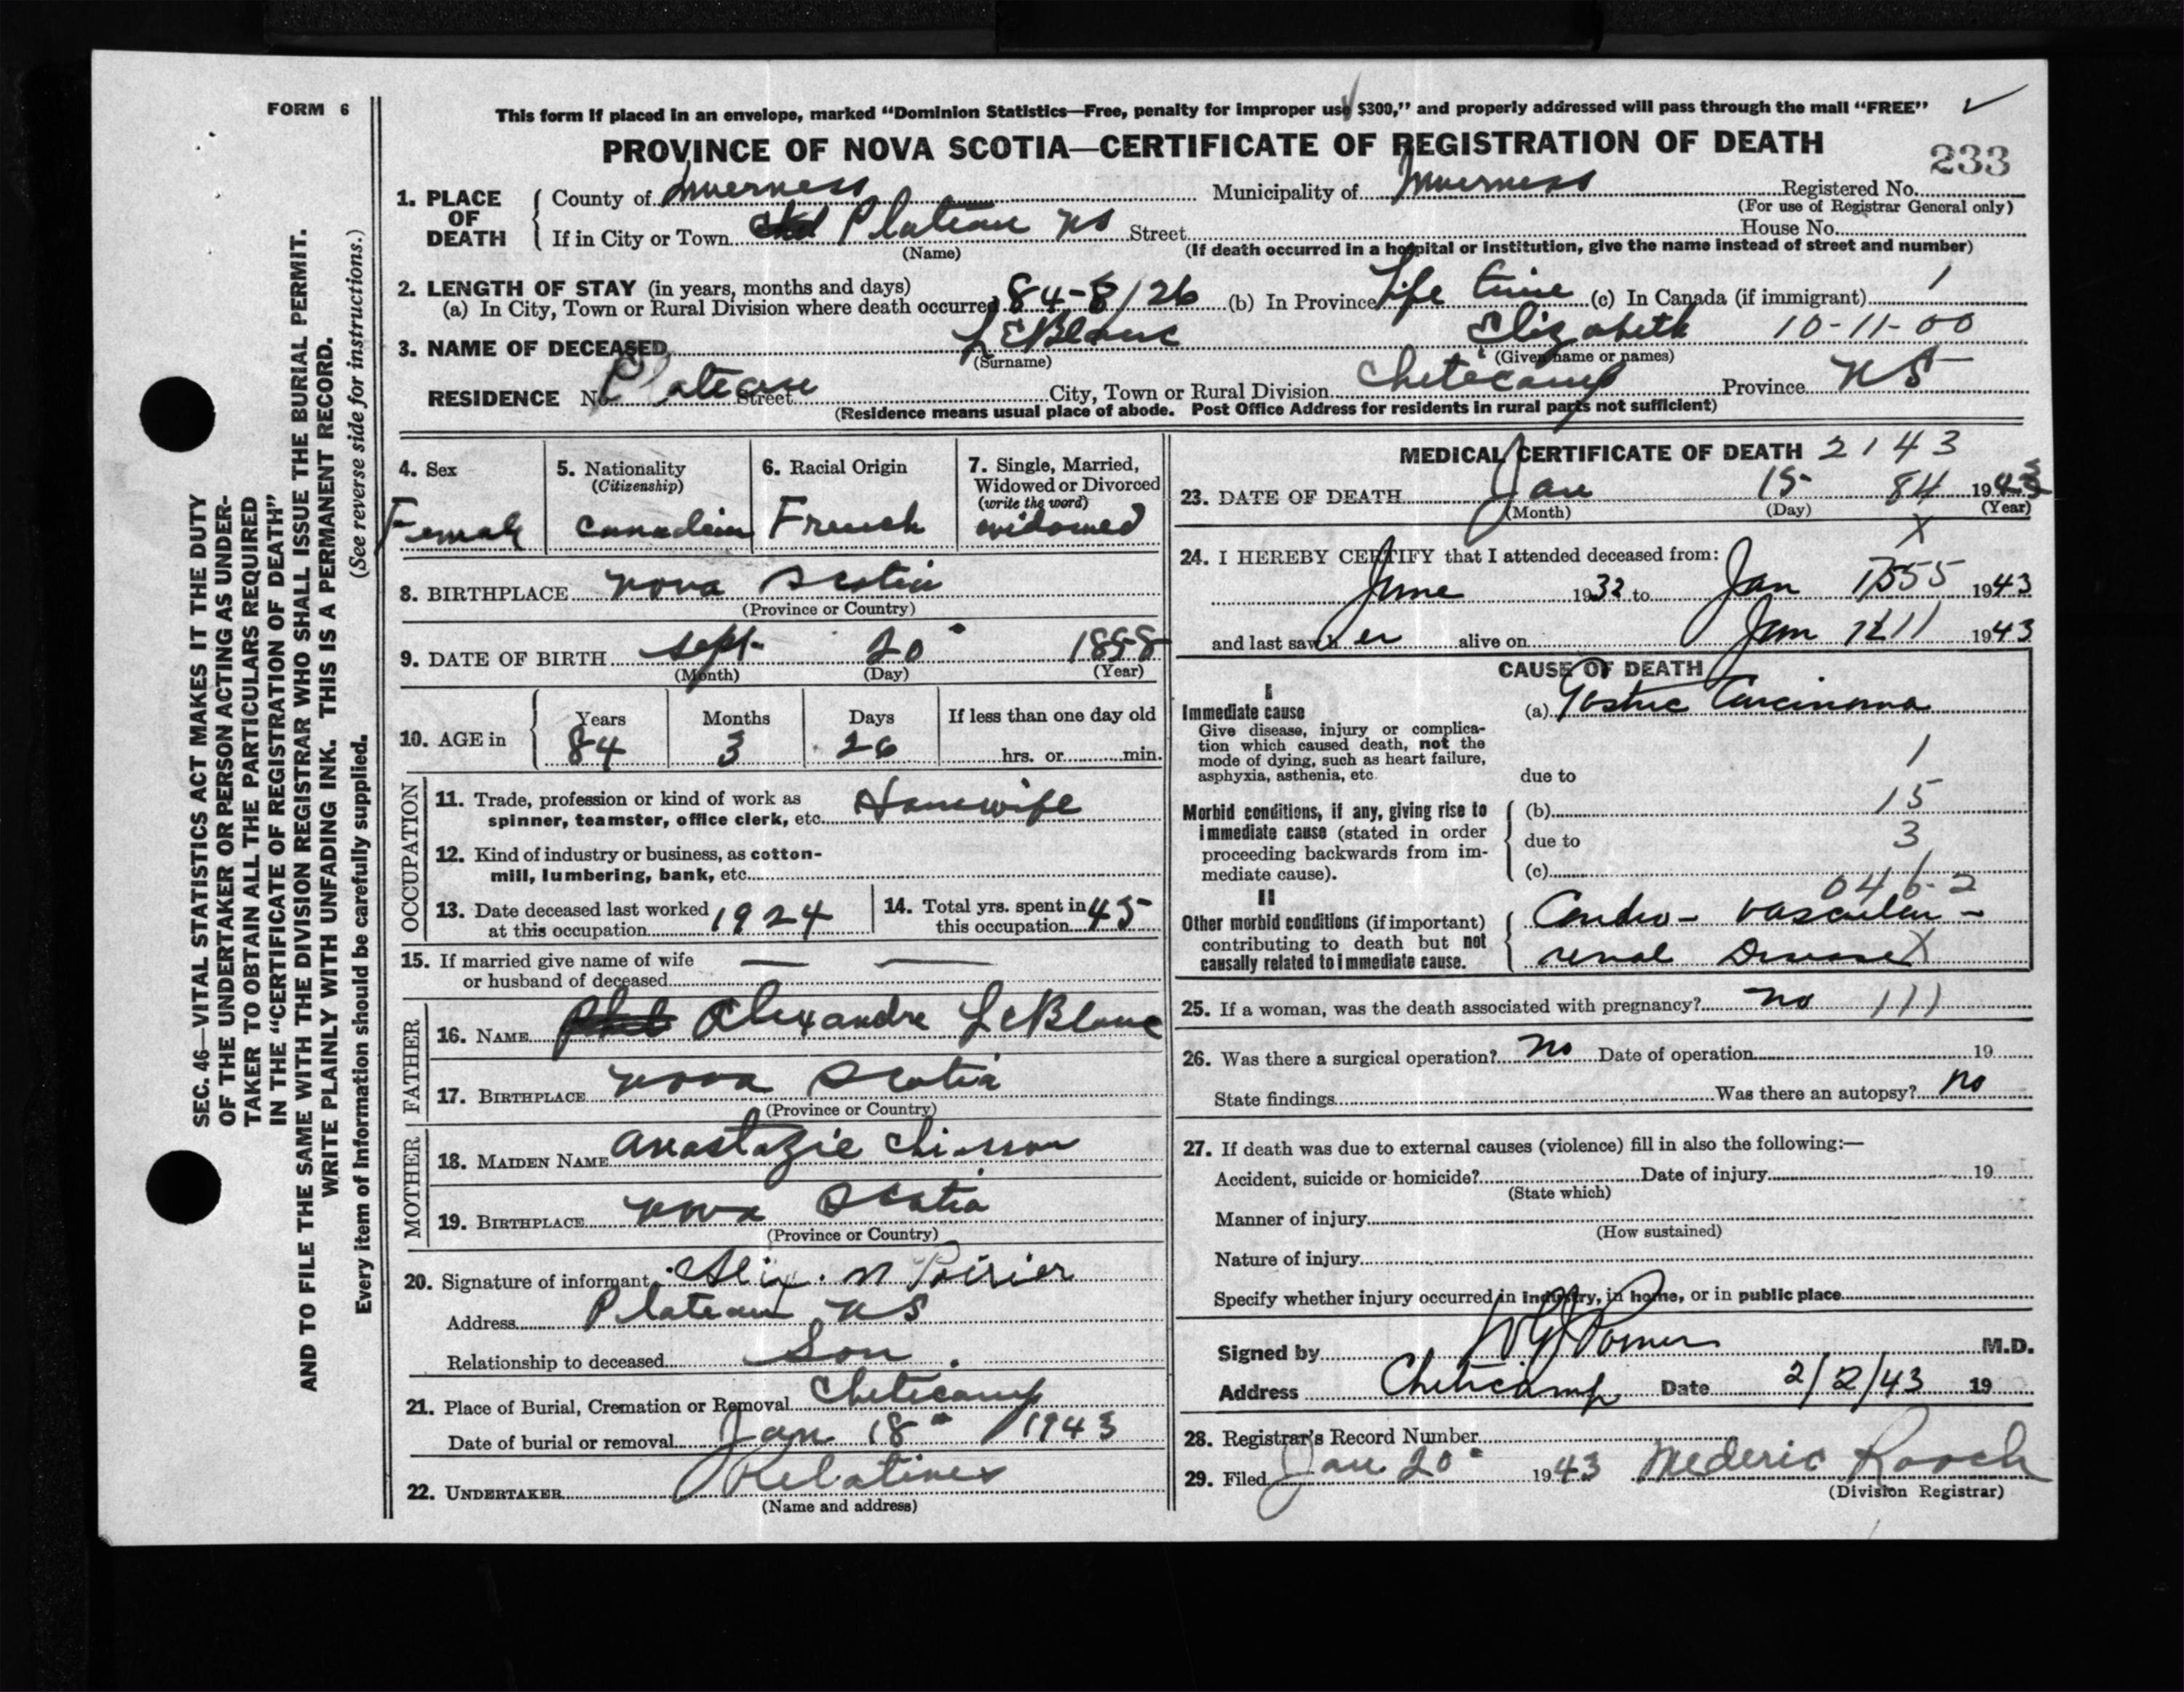 FORM 6
This form if placed in an envelope, marked “Dominion Statistics—Free, penalty for improper use $300,” and properly addressed will pass through the mail “FREE”
PROVINCE OF NOVA SCOTIA—CERTIFICATE OF REGISTRATION OF DEATH
233
1. PLACE OF DEATH
County of Inverness Municipality of Inverness Registered No.
(For use of Registrar General only)
If in City or Town Plateau NS Street House No.
(Name)
(If death occurred in a hospital or institution, give the name instead of street and number)
2. LENGTH OF STAY (in years, months and days)
(a) In City, Town or Rural Division where death occurred 84-3/26 (b) In Province Life time (c) In Canada (if immigrant) 1
3. NAME OF DECEASED LeBlanc Elizabeth 10-11-00
(Surname) (Given name or names)
RESIDENCE No. Plateau Street City, Town or Rural Division Cheticamp Province NS
(Residence means usual place of abode. Post Office Address for residents in rural parts not sufficient)
4. Sex
Female
5. Nationality
(Citizenship)
Canadian
6. Racial Origin
French
7. Single, Married, Widowed or Divorced
(write the word)
widowed
8. BIRTHPLACE Nova Scotia
(Province or Country)
9. DATE OF BIRTH Sept. 20 1858
(Month) (Day) (Year)
10. AGE in
Years Months Days If less than one day old
84 3 26 hrs. or min.
OCCUPATION
11. Trade, profession or kind of work as
spinner, teamster, office clerk, etc. Housewife
12. Kind of industry or business, as cotton-
mill, lumbering, bank, etc.
13. Date deceased last worked
at this occupation 1924
14. Total yrs. spent in
this occupation 45
15. If married give name of wife
or husband of deceased — —
FATHER
16. NAME Alexandre LeBlanc
17. BIRTHPLACE Nova Scotia
(Province or Country)
MOTHER
18. MAIDEN NAME Anastazie Chiasson
19. BIRTHPLACE Nova Scotia
(Province or Country)
20. Signature of informant Alex. N Poirier
Address Plateau NS
Relationship to deceased Son.
21. Place of Burial, Cremation or Removal Cheticamp
Date of burial or removal Jan. 18 1943
22. UNDERTAKER Relatives
(Name and address)
MEDICAL CERTIFICATE OF DEATH 2143
23. DATE OF DEATH Jan 15 84 1943
(Month) (Day) (Year)
X
24. I HEREBY CERTIFY that I attended deceased from:
June 1932 to Jan 1943
and last saw her alive on Jan 1943
CAUSE OF DEATH
I
Immediate cause
Give disease, injury or complica-
tion which caused death, not the
mode of dying, such as heart failure,
asphyxia, asthenia, etc.
(a) Gastric Carcinoma
1
due to
Morbid conditions, if any, giving rise to
immediate cause (stated in order
proceeding backwards from im-
mediate cause).
(b) 15
due to 3
(c)
046-2
II
Other morbid conditions (if important)
contributing to death but not
causally related to immediate cause.
Cardio-vascular-
renal Disease X
25. If a woman, was the death associated with pregnancy? no 111
26. Was there a surgical operation? no Date of operation 19
State findings Was there an autopsy? no
27. If death was due to external causes (violence) fill in also the following:—
Accident, suicide or homicide? Date of injury 19
(State which)
Manner of injury
(How sustained)
Nature of injury
Specify whether injury occurred in industry, in home, or in public place
Signed by M.D.
Address Cheticamp Date 2/2/43 19
28. Registrar's Record Number
29. Filed Jan 20 1943 Mederic Roach
(Division Registrar)
SEC. 46—VITAL STATISTICS ACT MAKES IT THE DUTY
OF THE UNDERTAKER OR PERSON ACTING AS UNDER-
TAKER TO OBTAIN ALL THE PARTICULARS REQUIRED
IN THE “CERTIFICATE OF REGISTRATION OF DEATH”
AND TO FILE THE SAME WITH THE DIVISION REGISTRAR WHO SHALL ISSUE THE BURIAL PERMIT.
WRITE PLAINLY WITH UNFADING INK. THIS IS A PERMANENT RECORD.
Every item of information should be carefully supplied. (See reverse side for instructions.)